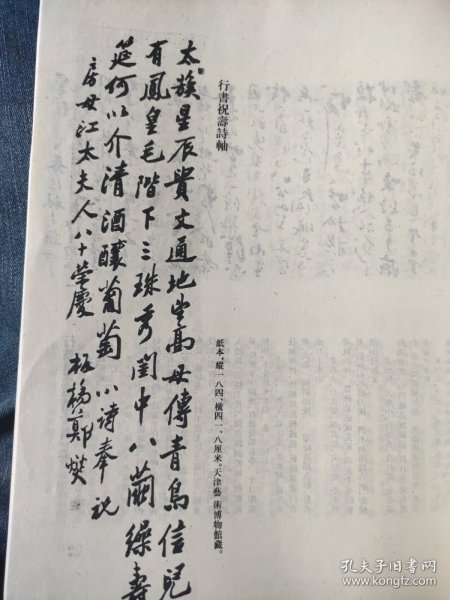 行書祝壽詩軸
紙本，縱一八四、橫四一、八厘米。天津藝術博物館藏。
太簇星辰貴文通地望高母傳青鳥信兒
有鳳皇毛階下三珠秀閨中八繭繰壽
筵何以介清酒釀葡萄 小诗奉祝
房母江太夫人八十榮慶 板橋鄭燮
孔夫子旧书网
www.kongfz.com